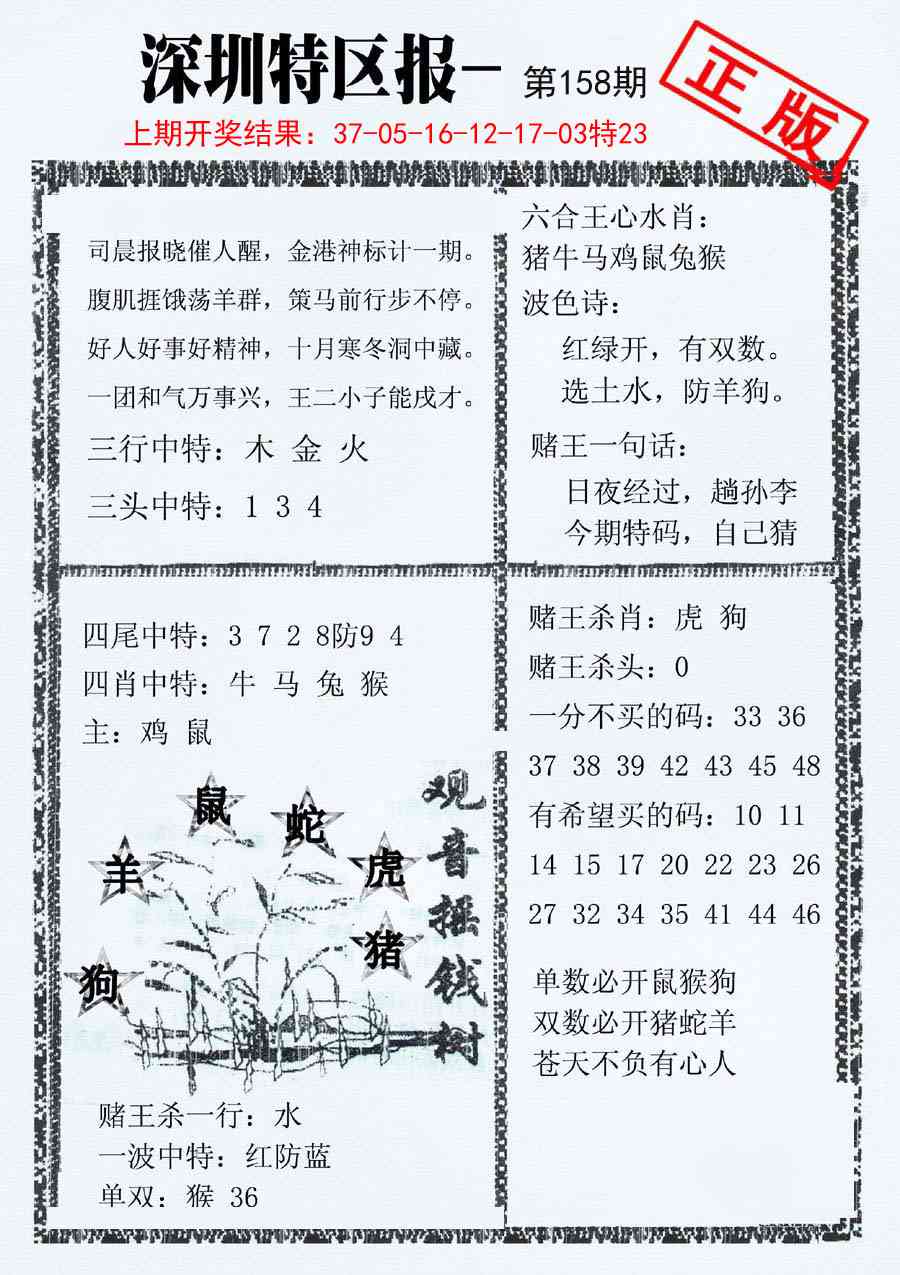 深圳特区报- 第158期
正版
上期开奖结果：37-05-16-12-17-03特23
司晨报晓催人醒，金港神标计一期。
腹肌捱饿荡羊群，策马前行步不停。
好人好事好精神，十月寒冬洞中藏。
一团和气万事兴，王二小子能戌才。
三行中特：木 金 火
三头中特：1 3 4
六合王心水肖：
猪牛马鸡鼠兔猴
波色诗：
红绿开，有双数。
选土水，防羊狗。
赌王一句话：
日夜经过，趟孙李
今期特码，自己猜
四尾中特：3 7 2 8防9 4
四肖中特：牛 马 兔 猴
主：鸡 鼠
鼠
蛇
羊
虎
猪
狗
观音摇钱树
赌王杀一行：水
一波中特：红防蓝
单双：猴 36
赌王杀肖：虎 狗
赌王杀头：0
一分不买的码：33 36
37 38 39 42 43 45 48
有希望买的码：10 11
14 15 17 20 22 23 26
27 32 34 35 41 44 46
单数必开鼠猴狗
双数必开猪蛇羊
苍天不负有心人